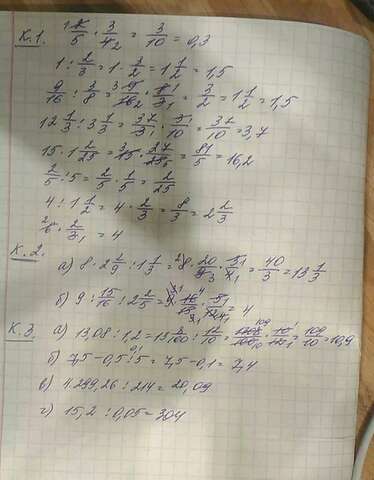 К.1. 2/5 · 3/4 = 3/10 = 0,3
1 : 2/3 = 1 · 3/2 = 1 1/2 = 1,5
9/16 : 3/8 = 9/16 · 8/3 = 3/2 = 1 1/2 = 1,5
12 1/3 : 3 1/3 = 37/3 · 3/10 = 37/10 = 3,7
15 · 1 2/25 = 15 · 27/25 = 81/5 = 16,2
2/5 : 5 = 2/5 · 1/5 = 2/25
4 : 1 1/2 = 4 · 2/3 = 8/3 = 2 2/3
6 · 2/3 = 4
К.2.
а) 8 · 2 2/9 : 1 1/3 = 8 · 20/9 · 3/4 = 40/3 = 13 1/3
б) 9 : 15/16 : 2 2/5 = 9 · 16/15 · 5/12 = 4
К.3. а) 13,08 : 1,2 = 13 8/100 : 12/10 = 1308/100 · 10/12 = 109/10 = 10,9
б) 7,5 - 0,5 : 5 = 7,5 - 0,1 = 7,4
в) 4 299,26 : 214 = 20,09
г) 15,2 : 0,05 = 304